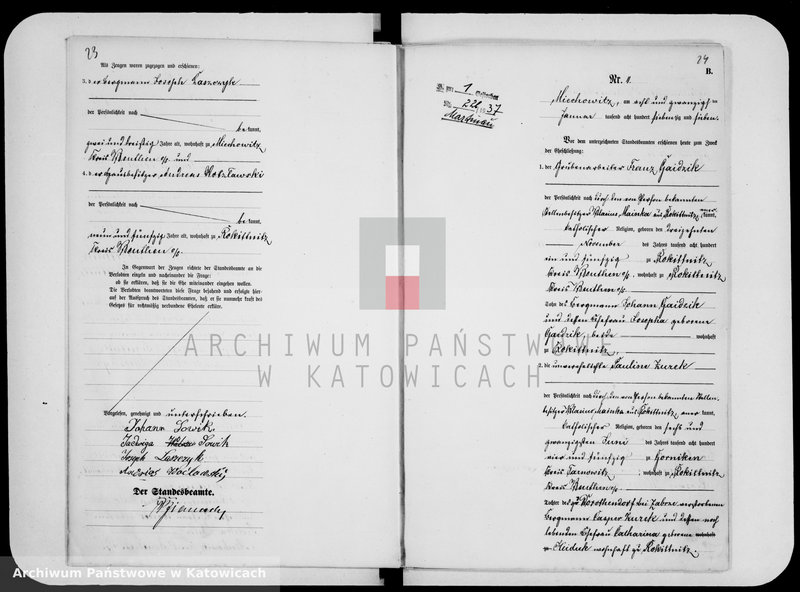 23
Als Zeugen waren zugezogen und erschienen:
3. der Bergmann Joseph Laszczyk
der Persönlichkeit nach
bekannt,
zwei und dreißig Jahre alt, wohnhaft zu Miechowitz
Kreis Beuthen o/s. und
4. der Hausbesitzer Andreas
der Persönlichkeit nach
bekannt,
neun und fünfzig Jahre alt, wohnhaft zu Rokittnitz
Kreis Beuthen o/s.
In Gegenwart der Zeugen richtete der Standesbeamte an die
Verlobten einzeln und nacheinander die Frage:
ob sie erklären, daß sie die Ehe miteinander eingehen wollen.
Die Verlobten beantworteten diese Frage bejahend und erfolgte hier-
auf der Ausspruch des Standesbeamten, daß er sie nunmehr kraft des
Gesetzes für rechtmäßig verbundene Eheleute erkläre.
Vorgelesen, genehmigt und unterschrieben.
Johann Sowik
Jadwiga Sowik
Joseph Laszczyk
Der Standesbeamte.
24
B.
Nr. 8.
Miechowitz, am acht und zwanzigsten
Januar tausend acht hundert siebenzig und sieben.
Vor dem unterzeichneten Standesbeamten erschienen heute zum Zweck
der Eheschließung:
1. der Grubenarbeiter Franz Gaidzik
der Persönlichkeit nach durch den von Person bekannten
Stellenbesitzer Hilarius Mainka aus Rokittnitz anerkannt,
katholischer Religion, geboren den dreizehnten
November des Jahres tausend acht hundert
ein und fünfzig zu Rokittnitz
Kreis Beuthen o/s., wohnhaft zu Rokittnitz
Kreis Beuthen o/s.
Sohn des Bergmann Johann Gaidzik
und dessen Ehefrau Josepha geborene
Gaidzik, beide wohnhaft
zu Rokittnitz.
2. die unverehelichte Pauline Kurek
der Persönlichkeit nach durch den von Person bekannten Stellen-
besitzer Hilarius Mainka aus Rokittnitz aner kannt,
katholischer Religion, geboren den sechs und
zwanzigsten Juni des Jahres tausend acht hundert
vier und fünfzig zu Horniken
Kreis Tarnowitz, wohnhaft zu Rokittnitz
Kreis Beuthen o/s.
Tochter des zu Dorotheendorf bei Zabrze verstorbenen
Bergmann Casper Kurek und dessen noch
lebenden Ehefrau Catharina geborene
Heiduk wohnhaft zu Rokittnitz.
ARCHIWUM PAŃSTWOWE
W KATOWICACH
Archiwum Państwowe w Katowicach